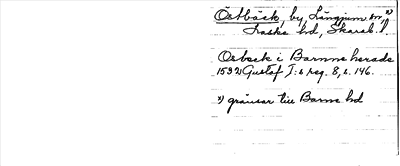 Östbäck, by, Längjum sn, x)
Laske hd, Skarab. l.
Osbeck i Barnne herade
1592 Gustaf I:s reg. 8, s. 146.
x) gränsar till Barne hd